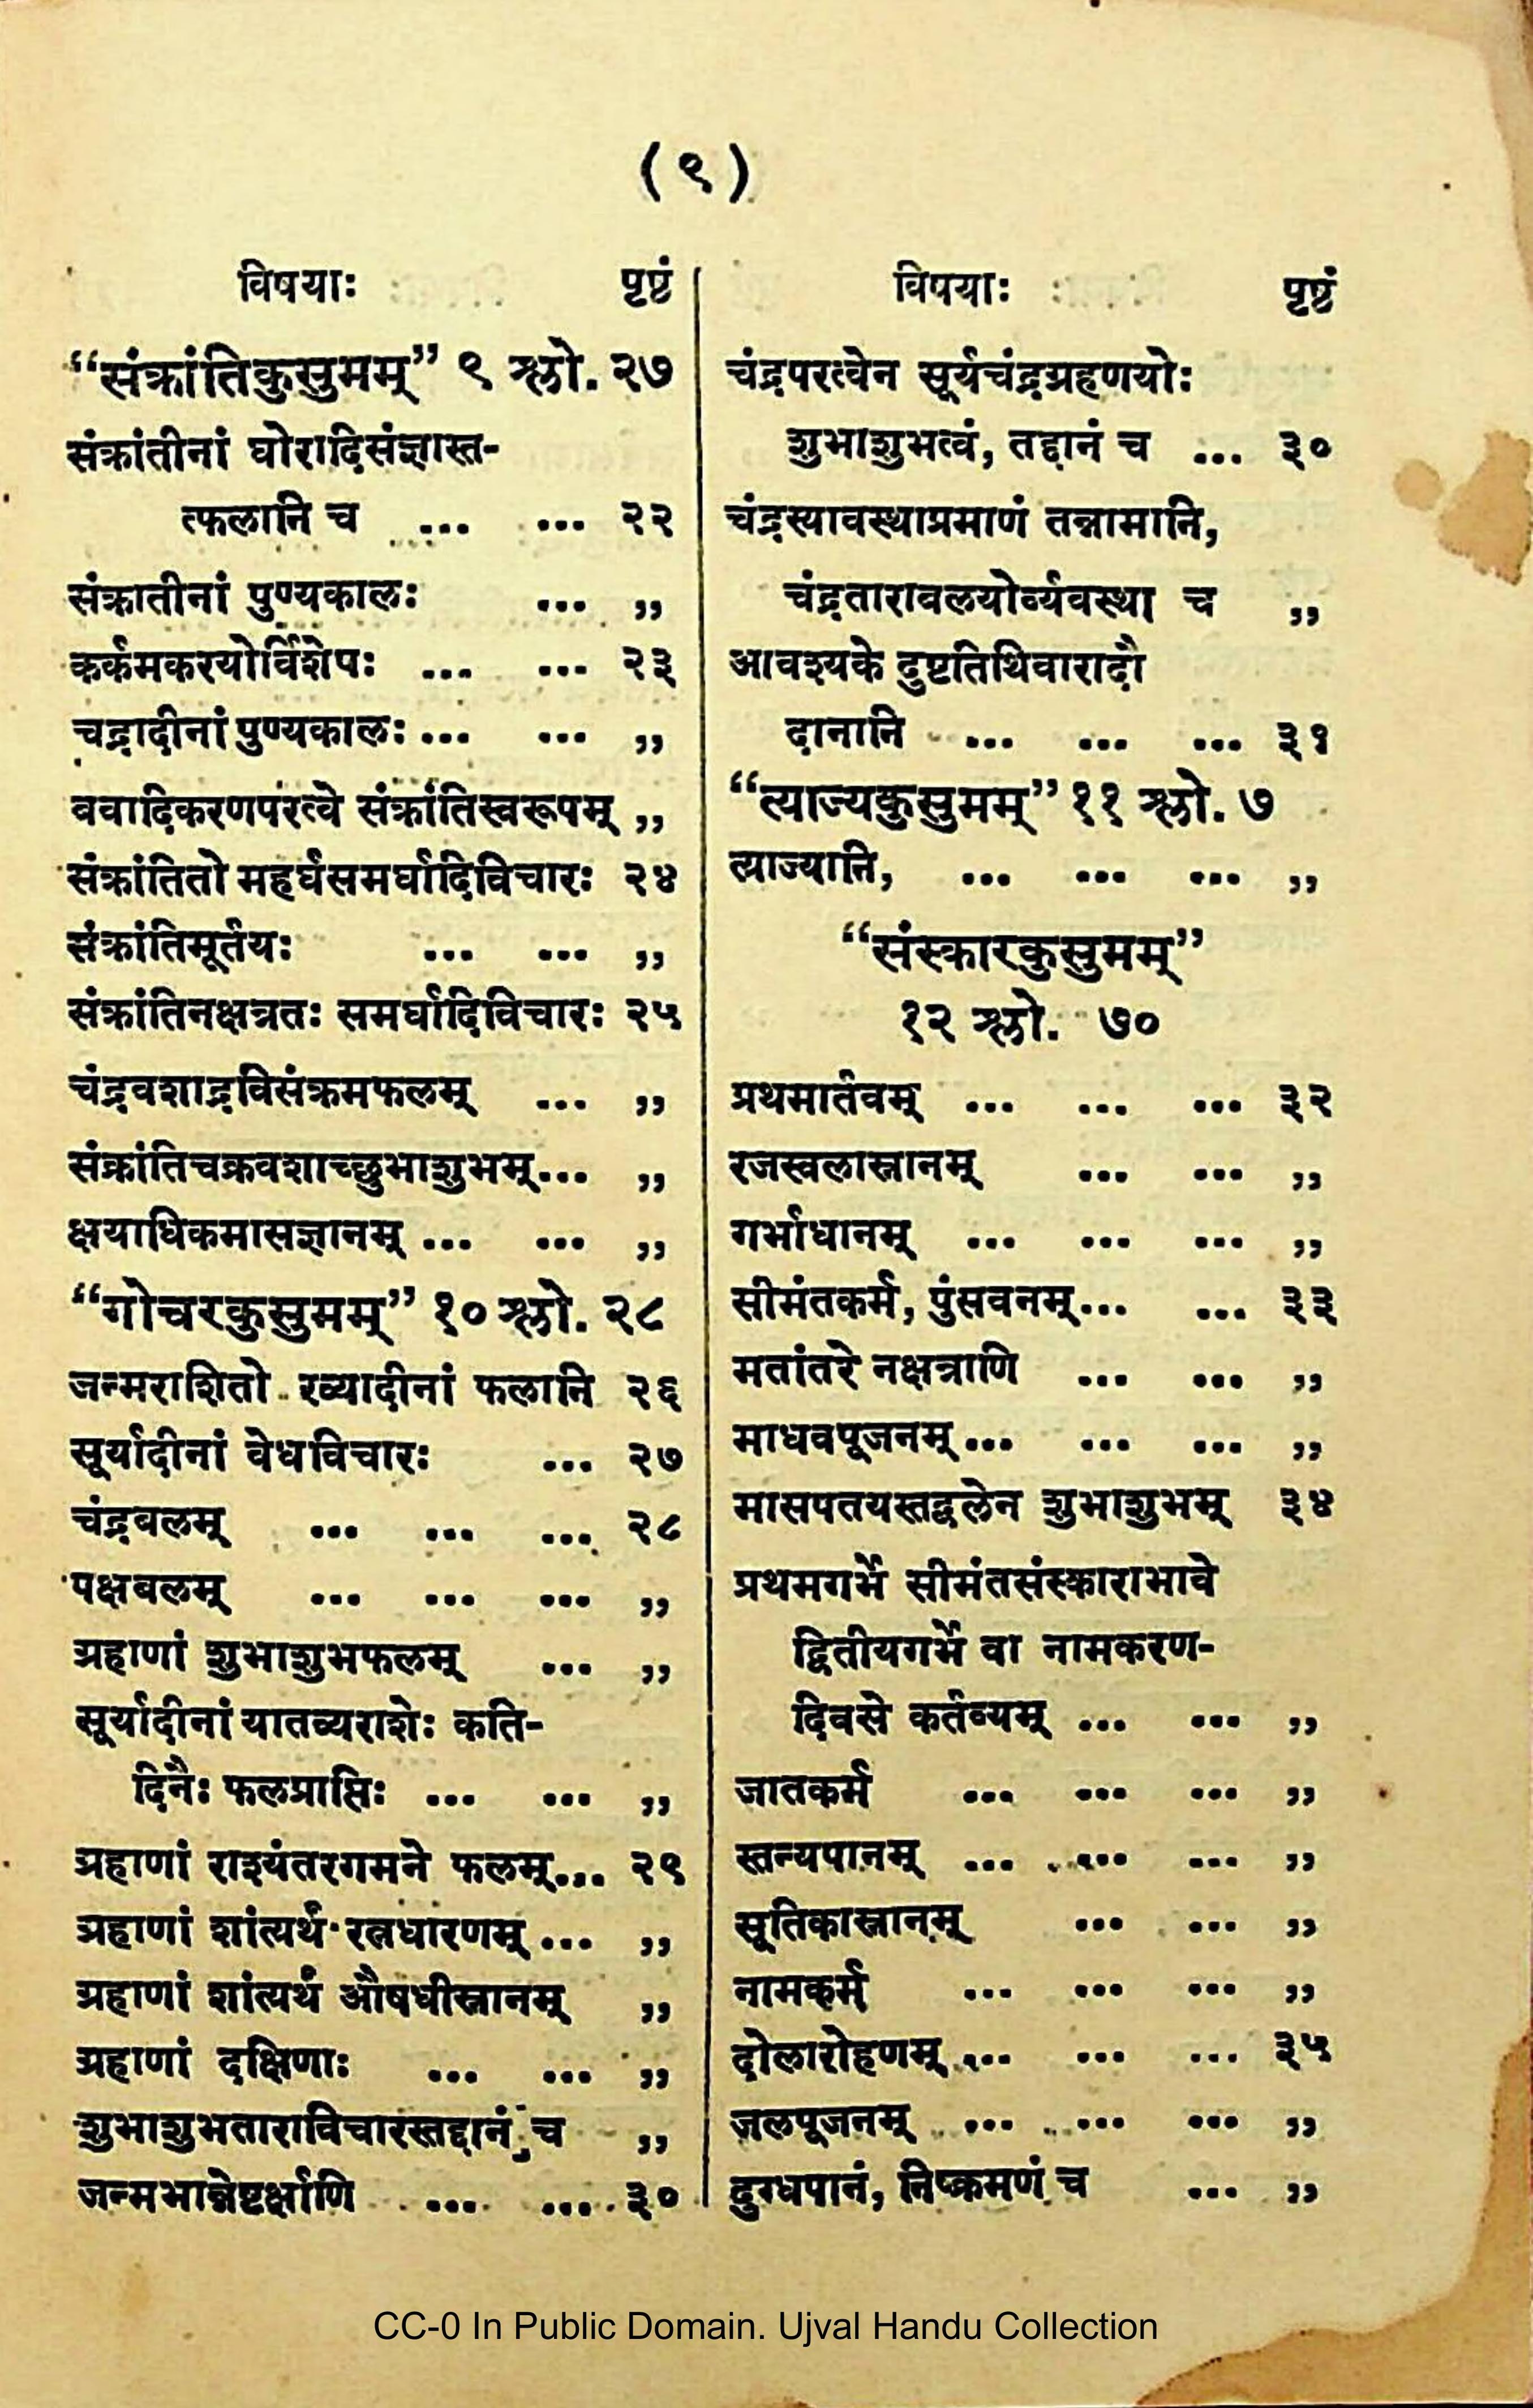 (९)
विषयाः पृष्ठं
“संक्रांतिकुसुमम्” ९ श्लो. २७
संक्रांतीनां घोरादिसंज्ञास्त-
त्फलानि च ... ... २२
संक्रातीनां पुण्यकालः ... ,,
कर्कमकरयोर्विशेषः ... ... २३
चद्रादीनां पुण्यकालः ... ... ,,
ववादिकरणपरत्वे संक्रांतिस्वरूपम् ,,
संक्रांतितो महर्घसमर्घादिविचारः २४
संक्रांतिमूर्तयः ... ... ,,
संक्रांतिनक्षत्रतः समर्घादिविचारः २५
चंद्रवशाद्रविसंक्रमफलम् ... ,,
संक्रांतिचक्रवशाच्छुभाशुभम्... ,,
क्षयाधिकमासज्ञानम् ... ... ,,
“गोचरकुसुमम्” १० श्लो. २८
जन्मराशितो रव्यादीनां फलानि २६
सूर्यादीनां वेधविचारः ... २७
चंद्रबलम् ... ... ... २८
पक्षबलम् ... ... ... ,,
ग्रहाणां शुभाशुभफलम् ... ,,
सूर्यादीनां यातव्यराशेः कति-
दिनैः फलप्राप्तिः ... ... ,,
ग्रहाणां राश्यंतरगमने फलम्... २९
ग्रहाणां शांत्यर्थं रत्नधारणम् ... ,,
ग्रहाणां शांत्यर्थं औषधीस्नानम् ,,
ग्रहाणां दक्षिणाः ... ... ,,
शुभाशुभताराविचारस्तद्दानं च ,,
जन्मभान्नेष्टर्क्षाणि ... ... ३०
विषयाः पृष्ठं
चंद्रपरत्वेन सूर्यचंद्रग्रहणयोः
शुभाशुभत्वं, तद्दानं च ... ३०
चंद्रस्यावस्थाप्रमाणं तन्नामानि,
चंद्रतारावलयोर्व्यवस्था च ,,
आवश्यके दुष्टतिथिवारादौ
दानानि ... ... ... ३१
“त्याज्यकुसुमम्” ११ श्लो. ७
त्याज्यानि, ... ... ... ,,
“संस्कारकुसुमम्”
१२ श्लो. ७०
प्रथमार्तवम् ... ... ... ३२
रजस्वलास्नानम् ... ... ,,
गर्भाधानम् ... ... ... ,,
सीमंतकर्म, पुंसवनम्... ... ३३
मतांतरे नक्षत्राणि ... ... ,,
माधवपूजनम्... ... ... ,,
मासपतयस्तद्बलेन शुभाशुभम् ३४
प्रथमगर्भे सीमंतसंस्काराभावे
द्वितीयगर्भे वा नामकरण-
दिवसे कर्तव्यम् ... ... ,,
जातकर्म ... ... ... ,,
स्तन्यपानम् ... ... ... ,,
सूतिकास्नानम् ... ... ,,
नामकर्म ... ... ... ,,
दोलारोहणम् ... ... ... ३५
जलपूजनम् ... ... ... ,,
दुग्धपानं, निष्क्रमणं च ... ,,
CC-0 In Public Domain. Ujval Handu Collection